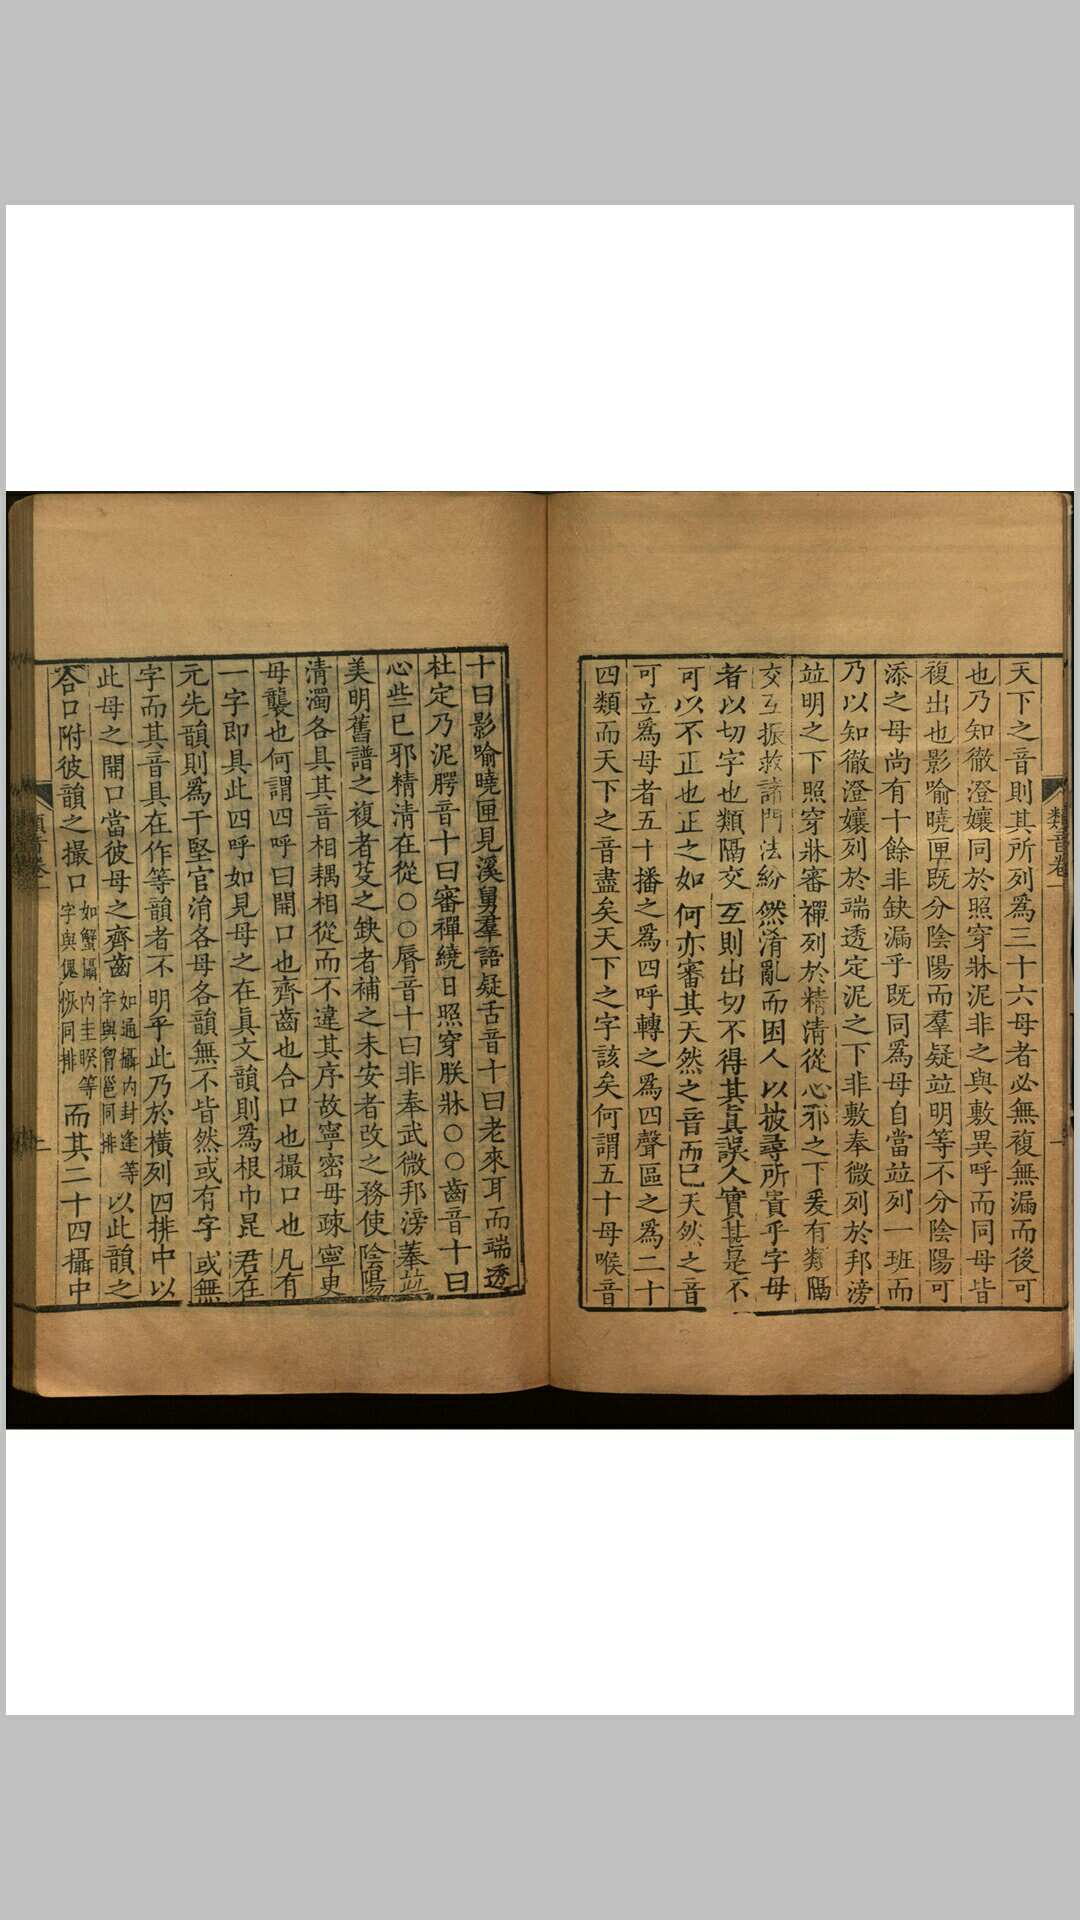 類音卷一
一
天下之音則其所列爲三十六母者必無複無漏而後可
也乃知徹澄孃同於照穿牀泥非之與敷異呼而同母皆
複出也影喻曉匣既分陰陽而羣疑竝明等不分陰陽可
添之母尚有十餘非缺漏乎既同爲母自當竝列一班而
乃以知徹澄孃列於端透定泥之下非敷奉微列於邦滂
竝明之下照穿牀審禪列於精清從心邪之下爰有類隔
交互振救諸門法紛然淆亂而困人以披尋所貴乎字母
者以切字也類隔交互則出切不得其眞誤人實甚是不
可以不正也正之如何亦審其天然之音而已天然之音
可立爲母者五十播之爲四呼轉之爲四聲區之爲二十
四類而天下之音盡矣天下之字該矣何謂五十母喉音
十曰影喻曉匣見溪舅羣語疑舌音十曰老來耳而端透
杜定乃泥腭音十曰審禪繞日照穿朕牀○○齒音十曰
心些巳邪精清在從○○脣音十曰非奉武微邦滂菶竝
美明舊譜之複者芟之缺者補之未安者改之務使陰陽
清濁各具其音相耦相從而不違其序故寧密毋疎寧更
毋襲也何謂四呼曰開口也齊齒也合口也撮口也凡有
一字即具此四呼如見母之在眞文韻則爲根巾昆君在
元先韻則爲干堅官涓各母各韻無不皆然或有字或無
字而其音具在作等韻者不明乎此乃於橫列四排中以
此母之開口當彼母之齊齒如通攝內封逢等字與胷邕同排以此韻之
合口附彼韻之撮口如蟹攝內圭睽等字與傀恢同排而其二十四攝中